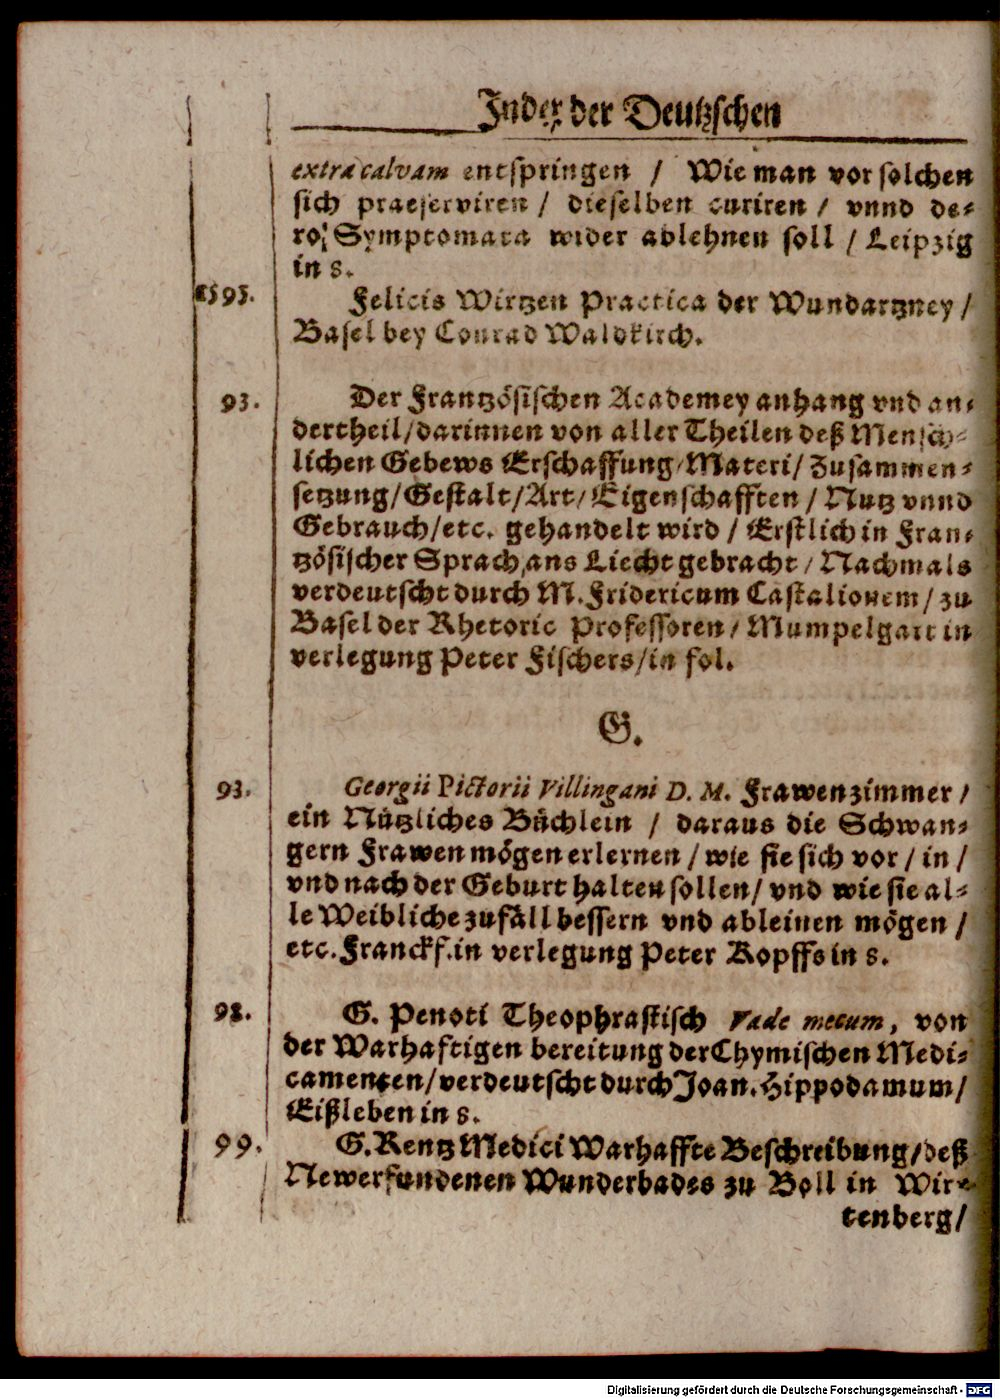 Index der Deutzschen
extra calvam entspringen / Wie man vor solchen
sich praeserviren / dieselben curiren / vnnd de-
ro Symptomata wider ablehnen soll / Leipzig
in 8.
1593. Felicis Wirtzen Practica der Wundartzney /
Basel bey Conrad Waldkirch.
93. Der Frantzösischen Academey anhang vnd an-
dertheil / darinnen von aller Theilen deß Mensch-
lichen Gebews Erschaffung / Materi / Zusammen-
setzung / Gestalt / Art / Eigenschafften / Nutz vnnd
Gebrauch / etc. gehandelt wird / Erstlich in Fran-
tzösischer Sprach ans Liecht gebracht / Nachmals
verdeutscht durch M. Fridericum Castalionem / zu
Basel der Rhetoric Professoren / Mumpelgart in
verlegung Peter Fischers / in fol.
G.
93. Georgii Pictorii Villingani D. M. Frawenzimmer /
ein Nützliches Büchlein / daraus die Schwan-
gern Frawen mögen erlernen / wie sie sich vor / in /
vnd nach der Geburt halten sollen / vnd wie sie al-
le Weibliche zufäll bessern vnd ableinen mögen /
etc. Franckf. in verlegung Peter Kopffs in 8.
98. G. Penoti Theophrastisch Vade mecum, von
der Warhafftigen bereitung der Chymischen Medi-
camenten / verdeutscht durch Joan. Hippodamum /
Eißleben in 8.
99. G. Rentz Medici Warhaffte Beschreibung / deß
Newerfundenen Wunderbades zu Boll in Wir-
tenberg /
Digitalisierung gefördert durch die Deutsche Forschungsgemeinschaft - DFG